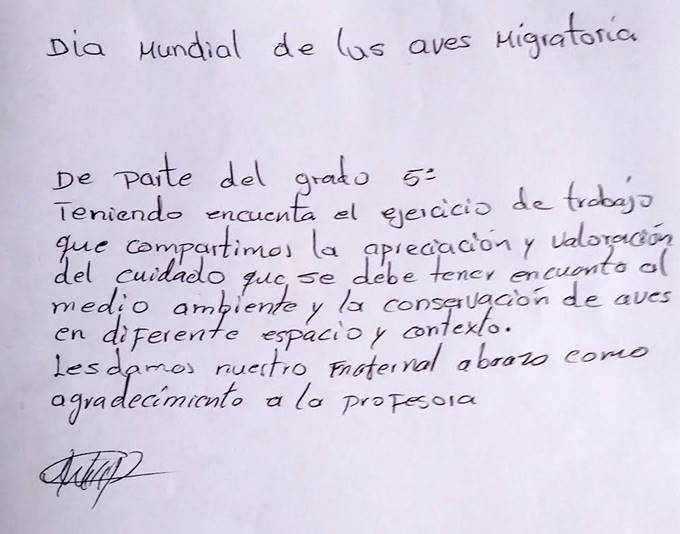 Dia Mundial de las aves Migratoria
De parte del grado 5º
Teniendo encuenta el ejercicio de trabajo
que compartimos la apreciación y valoración
del cuidado que se debe tener encuanto al
medio ambiente y la conservación de aves
en diferente espacio y contexto.
Les damos nuestro Fraternal abrazo como
agradecimiento a la profesora